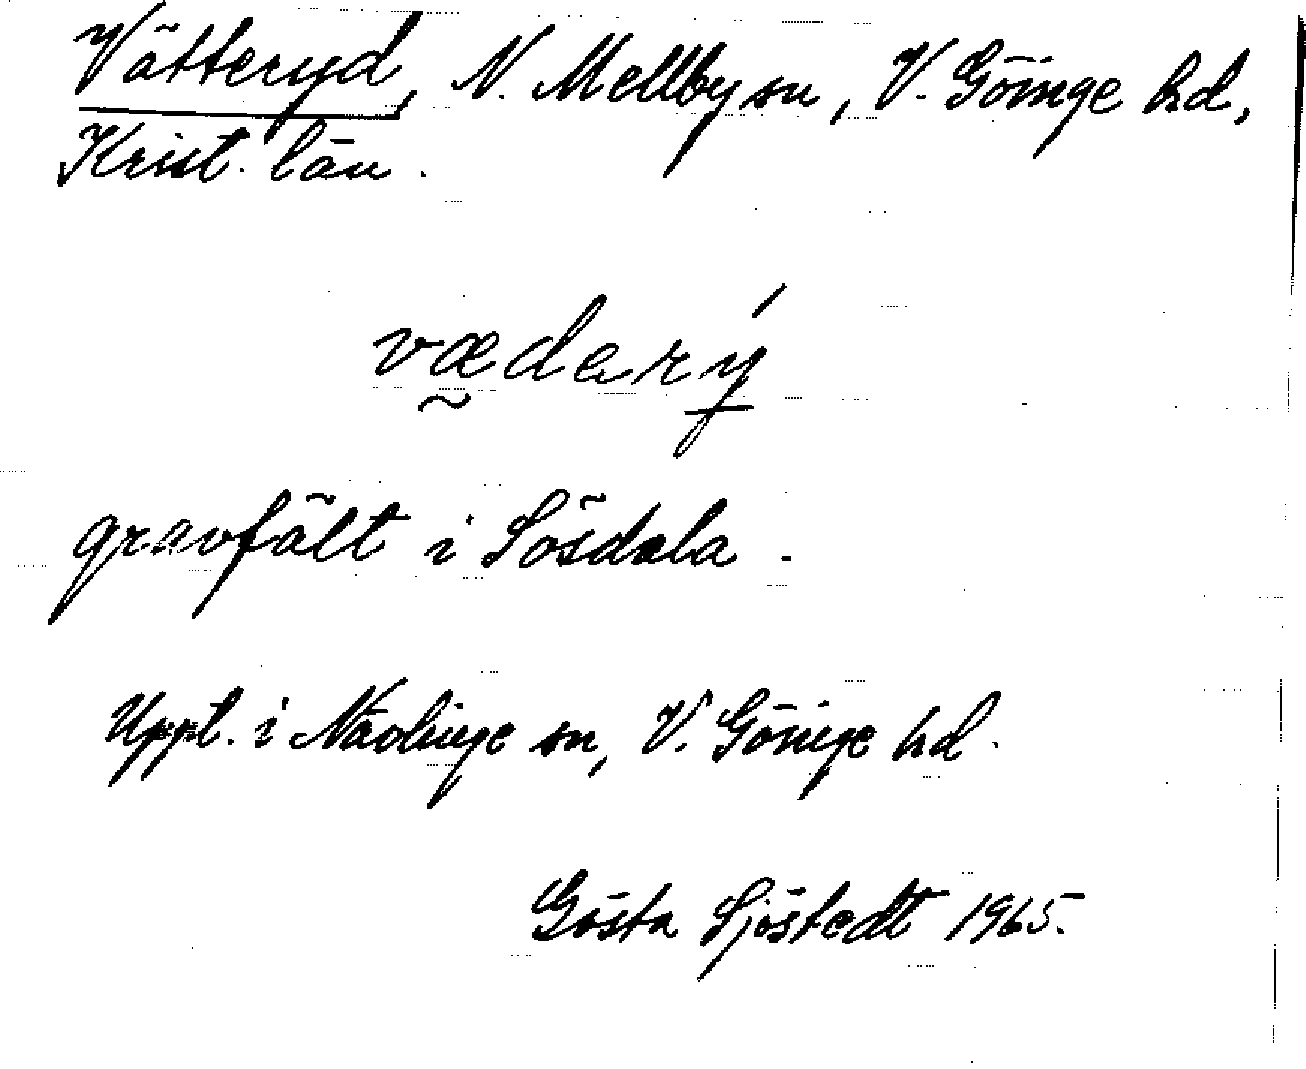 Vätteryd, N. Mellby sn, V. Göinge hd,
Krist. län.
væ̰darý
gravfält i Sösdala.
Uppt. i Nävlinge sn, V. Göinge hd.
Gösta Sjöstedt 1965.